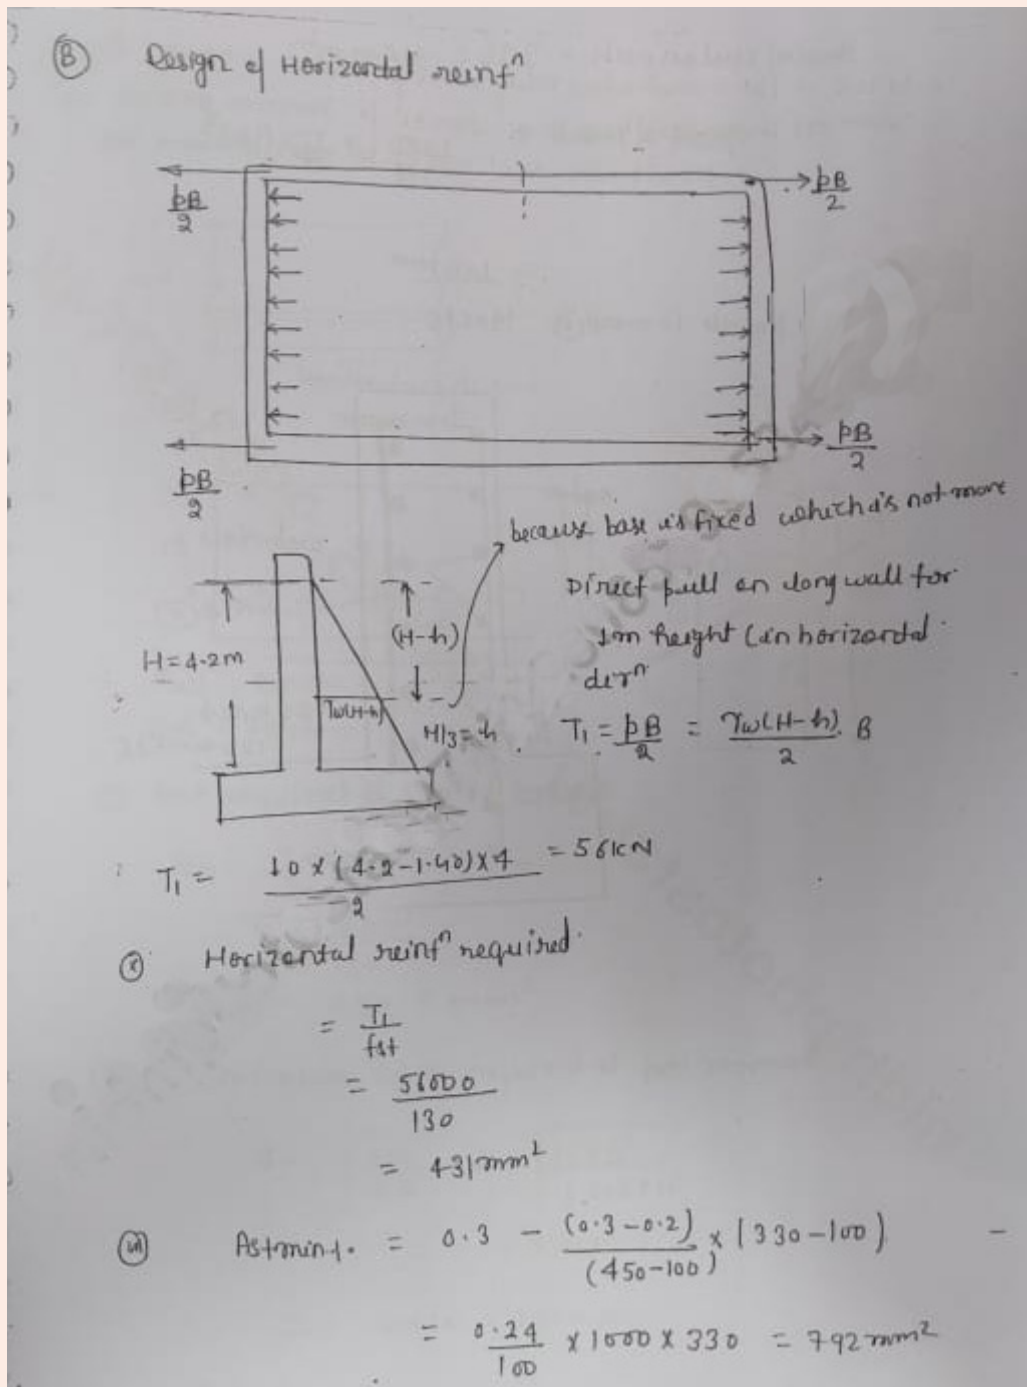 (B) Design of Horizontal reinfⁿ
pB/2
pB/2
pB/2
pB/2
because base is fixed which is not more
Direct pull on long wall for
1m height (in horizontal
dirⁿ
H = 4.2m
(H-h)
γw(H-h)
H/3 = h
T₁ = pB/2 = γw(H-h)/2 . B
T₁ = 10 x (4.2-1.40) x 4 / 2 = 56 kN
Horizontal reinfⁿ required.
= T₁/fst
= 56000/130
= 431 mm²
Astmint. = 0.3 - (0.3-0.2)/(450-100) x (330-100)
= 0.24/100 x 1000 x 330 = 792 mm²